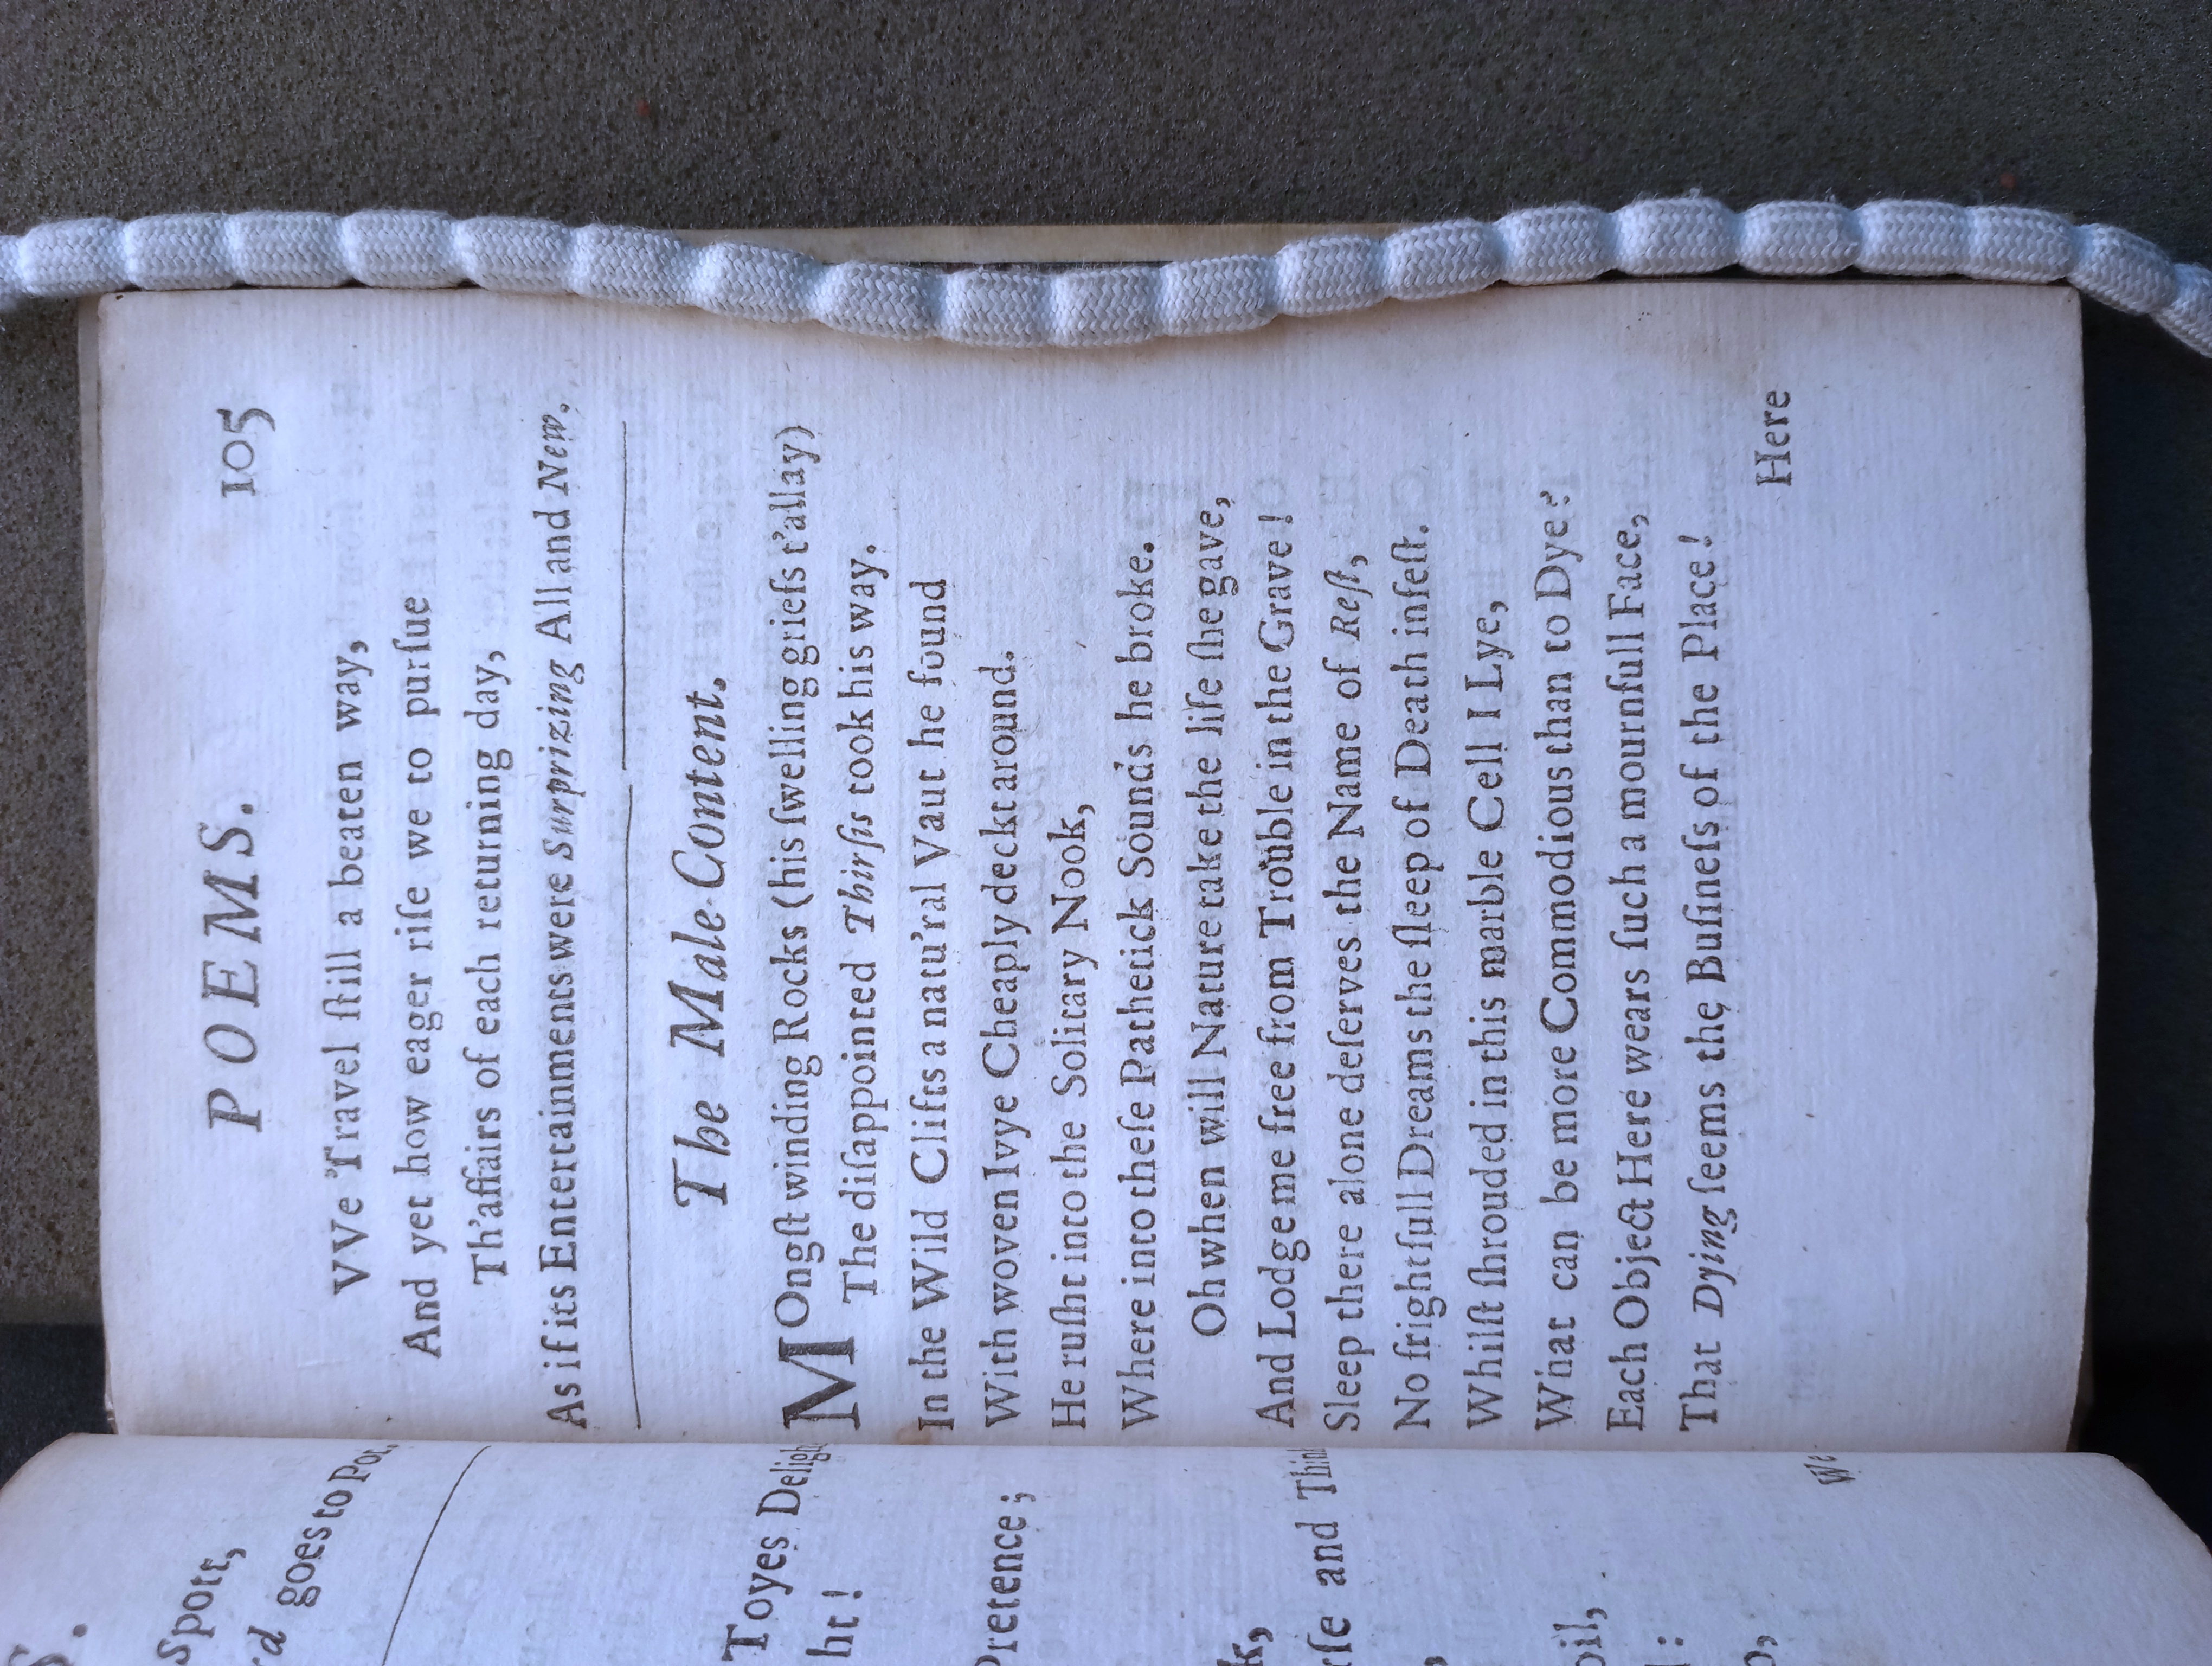 POEMS. 105
VVe Travel ſtill a beaten way,
And yet how eager riſe we to purſue
Th'affairs of each returning day,
As if its Entertainments were Surprizing All and New.
The Male-Content.
MOngſt winding Rocks (his ſwelling griefs t'allay)
The diſappointed Thirſis took his way.
In the Wild Clifts a natu'ral Vaut he found
With woven Ivye Cheaply deckt around.
He ruſht into the Solitary Nook,
Where into theſe Pathetick Sounds he broke.
Oh when will Nature take the life ſhe gave,
And Lodge me free from Trouble in the Grave!
Sleep there alone deſerves the Name of Reſt,
No frightfull Dreams the ſleep of Death infeſt.
Whilſt ſhrouded in this marble Cell I Lye,
What can be more Commodious than to Dye?
Each Object Here wears ſuch a mournfull Face,
That Dying ſeems the Buſineſs of the Place!
Here
S.
Sport,
goes to Pot.
Toyes Deligh
ht!
Pretence;
k,
rſe and Think
oil,
:
,
We